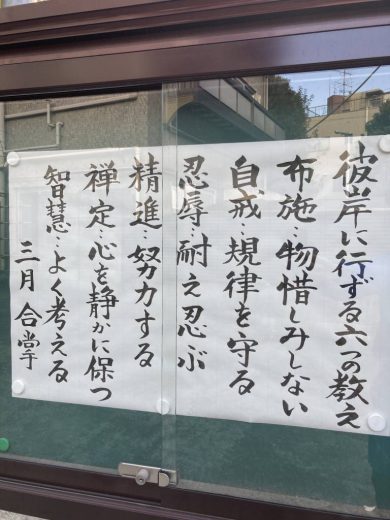 彼岸に行ずる六つの教え
布施…物惜しみしない
自戒…規律を守る
忍辱…耐え忍ぶ
精進…努力する
禅定…心を静かに保つ
智慧…よく考える
三月 合掌